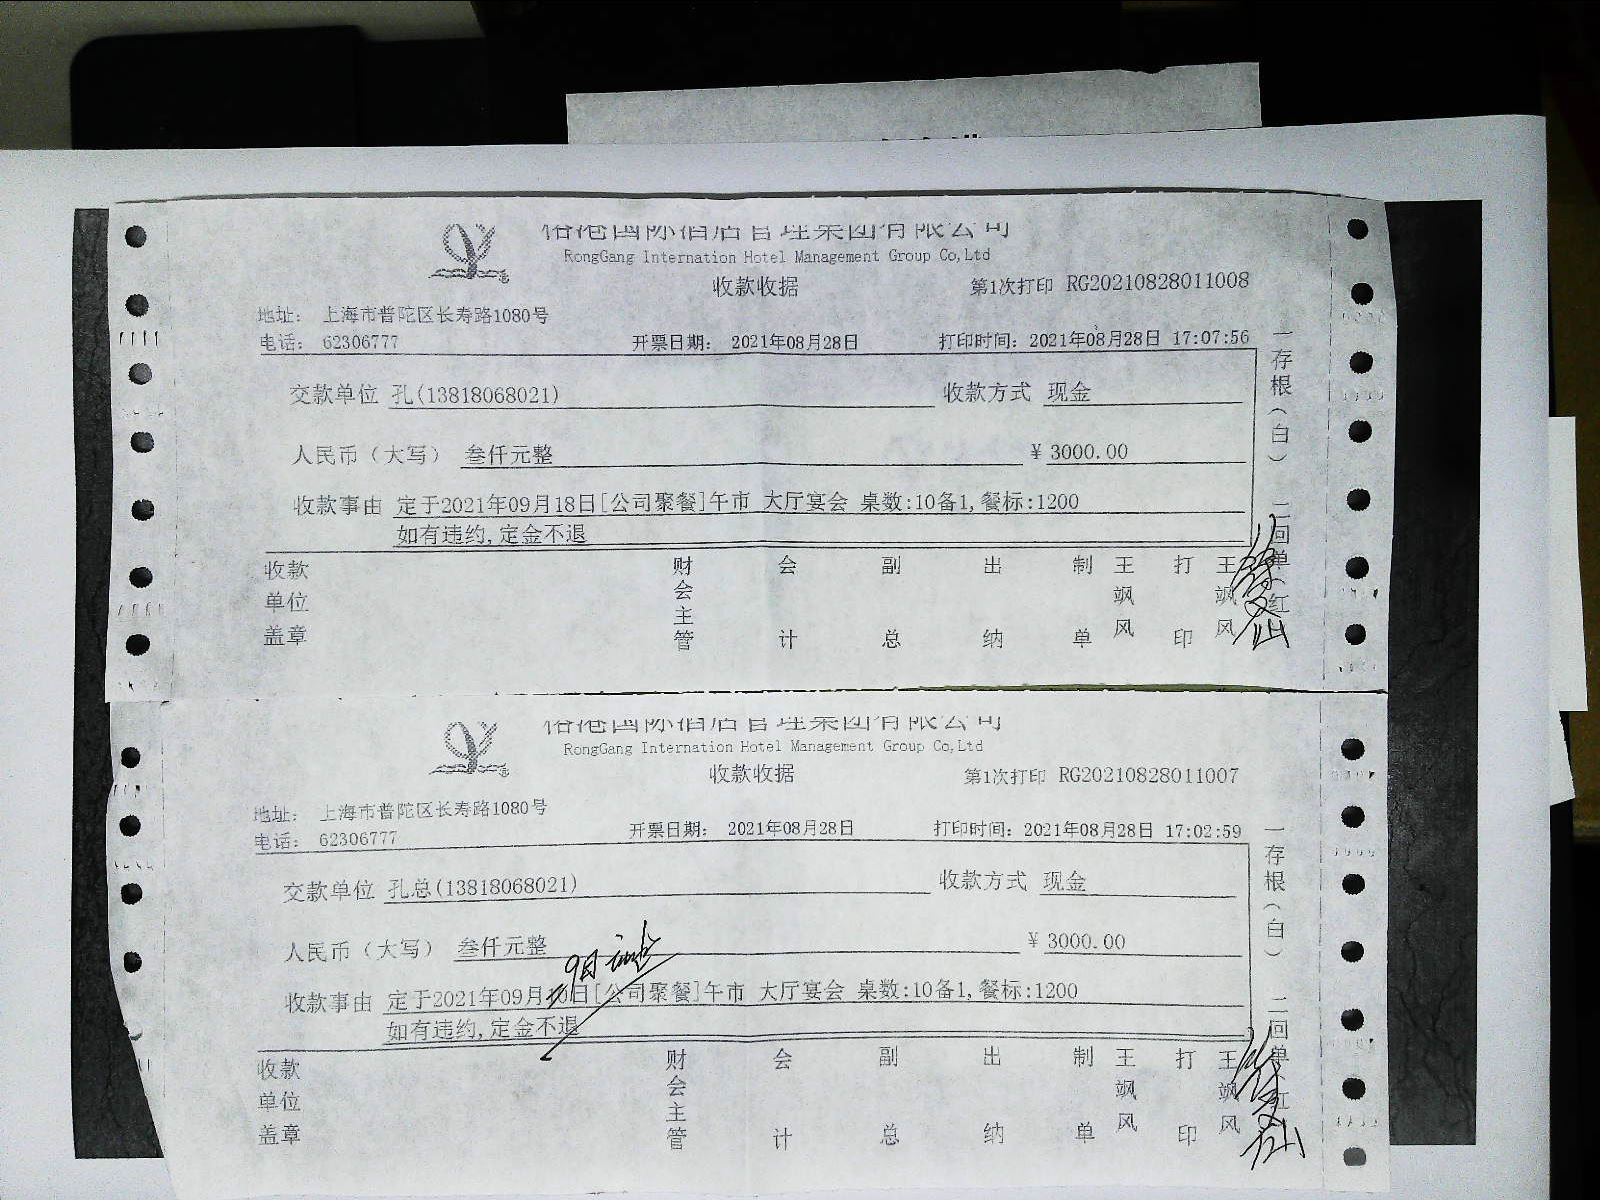 港国际酒店管理集团有限公司
RongGang Internation Hotel Management Group Co,Ltd
收款收据
第1次打印 RG20210828011008
地址： 上海市普陀区长寿路1080号
电话： 62306777 开票日期： 2021年08月28日 打印时间：2021年08月28日 17:07:56
交款单位 孔(13818068021) 收款方式 现金
人民币（大写） 叁仟元整 ¥ 3000.00
收款事由 定于2021年09月18日[公司聚餐]午市 大厅宴会 桌数:10备1,餐标:1200
如有违约,定金不退
收款单位盖章 财会主管 会计 副总 出纳 制单 王飒风 打印 王飒风
一存根（白） 二回单（红
港国际酒店管理集团有限公司
RongGang Internation Hotel Management Group Co,Ltd
收款收据
第1次打印 RG20210828011007
地址： 上海市普陀区长寿路1080号
电话： 62306777 开票日期： 2021年08月28日 打印时间：2021年08月28日 17:02:59
交款单位 孔总(13818068021) 收款方式 现金
人民币（大写） 叁仟元整 ¥ 3000.00
收款事由 定于2021年09月 日[公司聚餐]午市 大厅宴会 桌数:10备1,餐标:1200
如有违约,定金不退
收款单位盖章 财会主管 会计 副总 出纳 制单 王飒风 打印 王飒风
一存根（白） 二回单 红